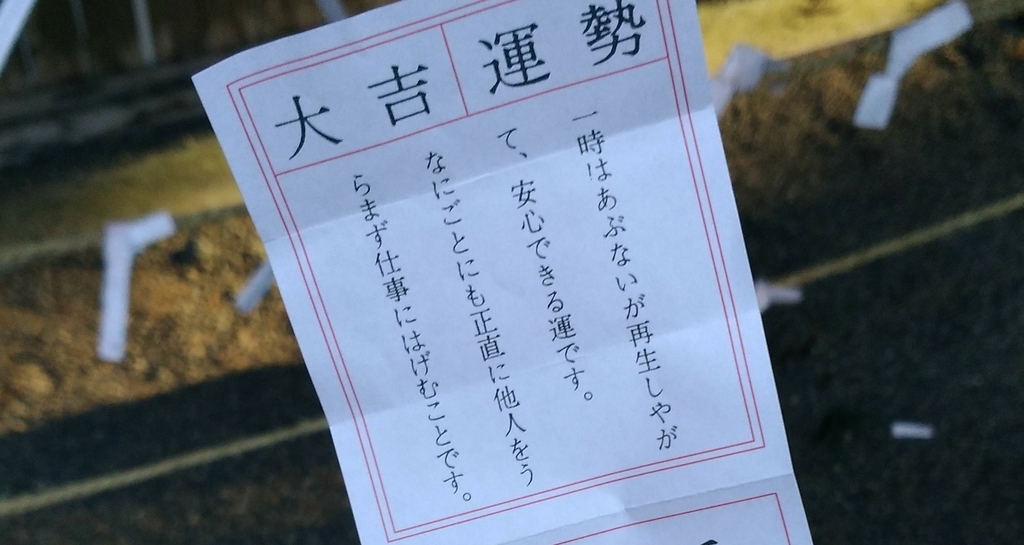 運勢
大吉
一時はあぶないが再生しやが
て、安心できる運です。
なにごとにも正直に他人をう
らまず仕事にはげむことです。